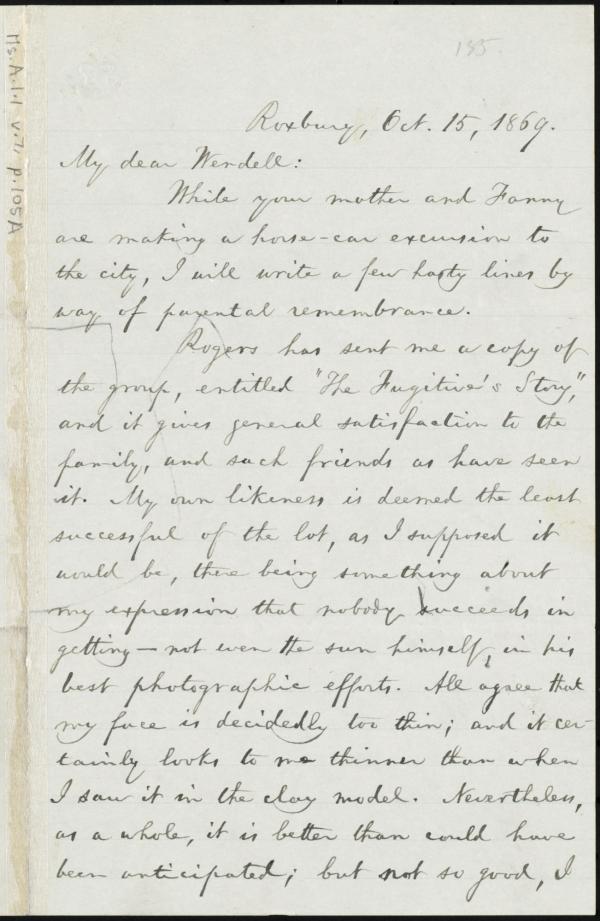 185.
Ms. A. 1. 1 v. 7, p. 105A
Roxbury, Oct. 15, 1869.
My dear Wendell:
While your mother and Fanny
are making a horse-car excursion to
the city, I will write a few hasty lines by
way of parental remembrance.
Rogers has sent me a copy of
the group, entitled "The Fugitive's Story",
and it gives general satisfaction to the
family, and such friends as have seen
it. My own likeness is deemed the least
successful of the lot, as I supposed it
would be, there being something about
my expression that nobody succeeds in
getting — not even the sun himself, in his
best photographic efforts. All agree that
my face is decidedly too thin; and it cer-
tainly looks to me thinner than when
I saw it in the clay model. Nevertheless,
as a whole, it is better than could have
been anticipated; but not so good, I